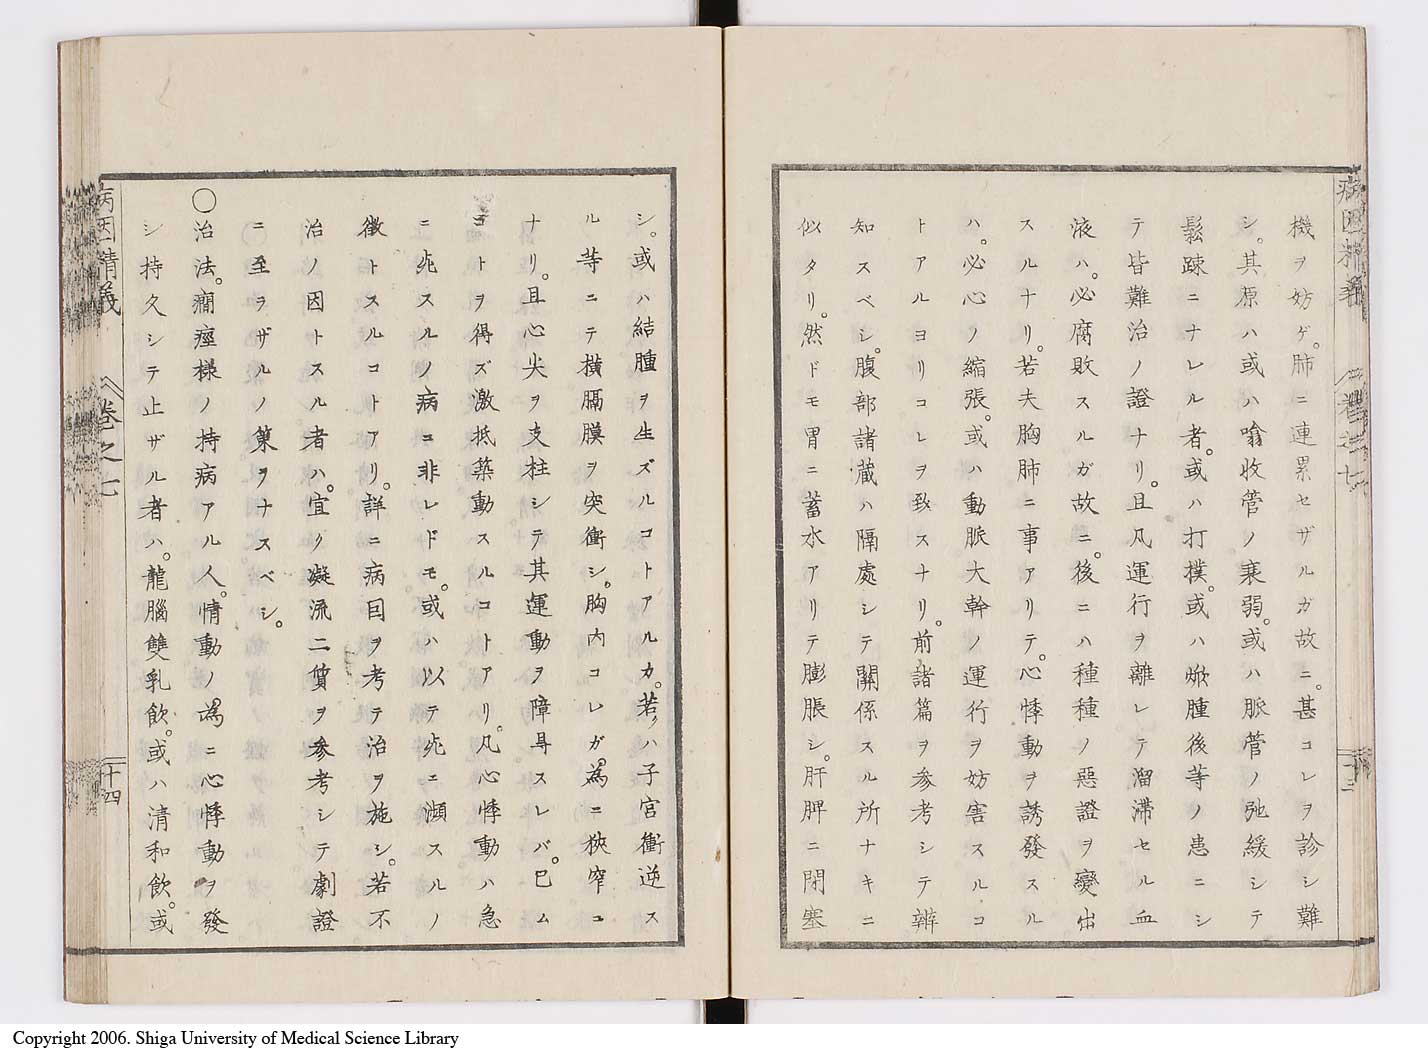 病因精義
卷之七
十三
機ヲ妨ゲ。肺ニ連累セザルガ故ニ。甚コレヲ診シ難
シ。其原ハ或ハ噏收管ノ衰弱。或ハ脈管ノ弛緩シテ
鬆踈ニナレル者。或ハ打撲。或ハ焮腫後等ノ患ニシ
テ皆難治ノ證ナリ。且凡運行ヲ離レテ溜滯セル血
液ハ。必腐敗スルガ故ニ。後ニハ種種ノ惡證ヲ變出
スルナリ。若夫胸肺ニ事アリテ。心悸動ヲ誘發スル
ハ。必心ノ縮張。或ハ動脈大幹ノ運行ヲ妨害スルコ
トアルヨリコレヲ致スナリ。前諸篇ヲ參考シテ辨
知スベシ。腹部諸藏ハ隔處シテ關係スル所ナキニ
似タリ。然ドモ胃ニ蓄水アリテ膨脹シ。肝脾ニ閉塞
シ。或ハ結腫ヲ生ズルコトアルカ。若クハ子宮衝逆ス
ル等ニテ橫膈膜ヲ突衝シ。胸内コレガ為ニ狹窄コ
ナリ。且心尖ヲ支柱シテ其運動ヲ障㝵スレバ。已ム
コトヲ得ズ激抵築動スルコトアリ。凡心悸動ハ急
ニ死スルノ病ニ非レドモ。或ハ以テ死ニ瀕スルノ
徵トスルコトアリ。詳ニ病因ヲ考テ治ヲ施シ。若不
治ノ因トスル者ハ。宜ク凝流二質ヲ參考シテ劇證
ニ至ヲザルノ策ヲナスベシ。
○治法。癇痙様ノ持病アル人。情動ノ。為ニ心悸動ヲ發
シ持久シテ止ザル者ハ。龍腦雙乳飲。或ハ清和飲。或
病因精義
卷之七
十四
Copyright 2006. Shiga University of Medical Science Library